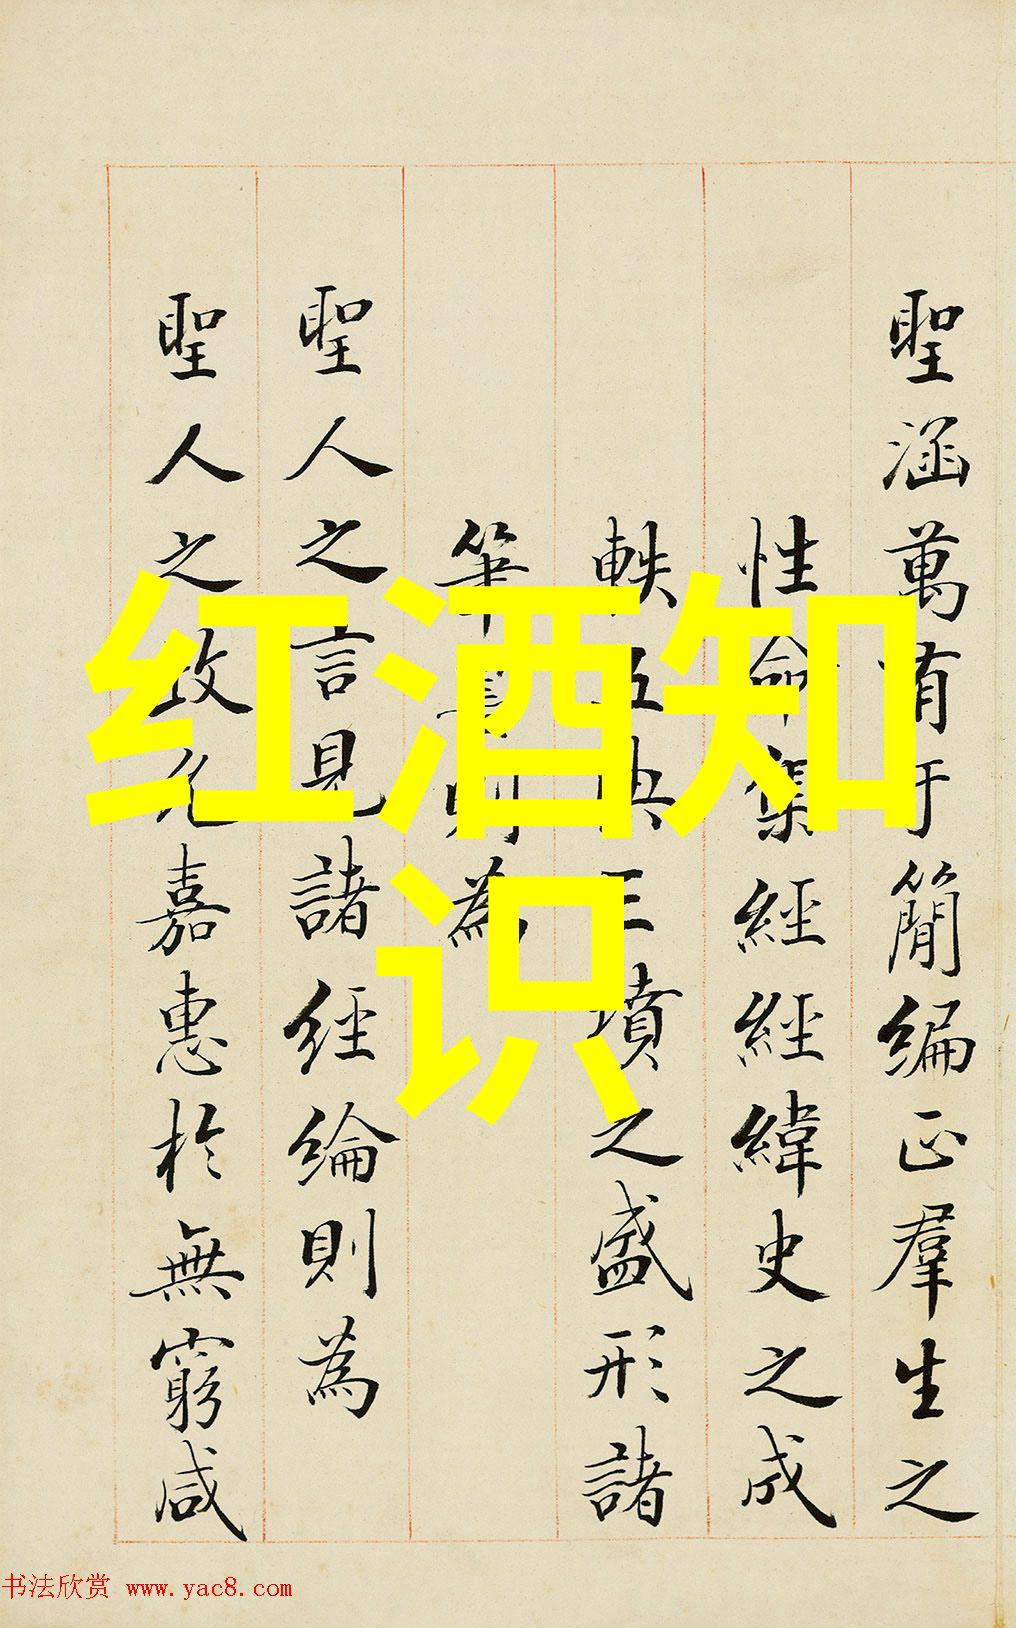 聖涵萬有于簡編正羣生之
性命集經經緯史之成
軼五典三墳之盛形諸
筆則為
聖人之言見諸經綸則為
聖人之政允嘉惠於無窮咸
红酒知
识
书法欣赏 www.yac8.com